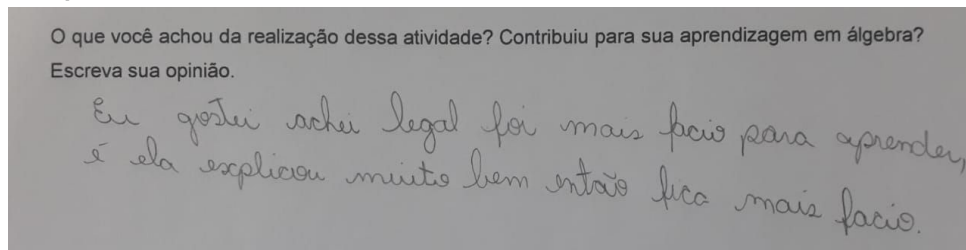 O que você achou da realização dessa atividade? Contribuiu para sua aprendizagem em álgebra?
Escreva sua opinião.
Eu gostei achei legal foi mais facio para aprender,
é ela explicou muito bem então fica mais facio.